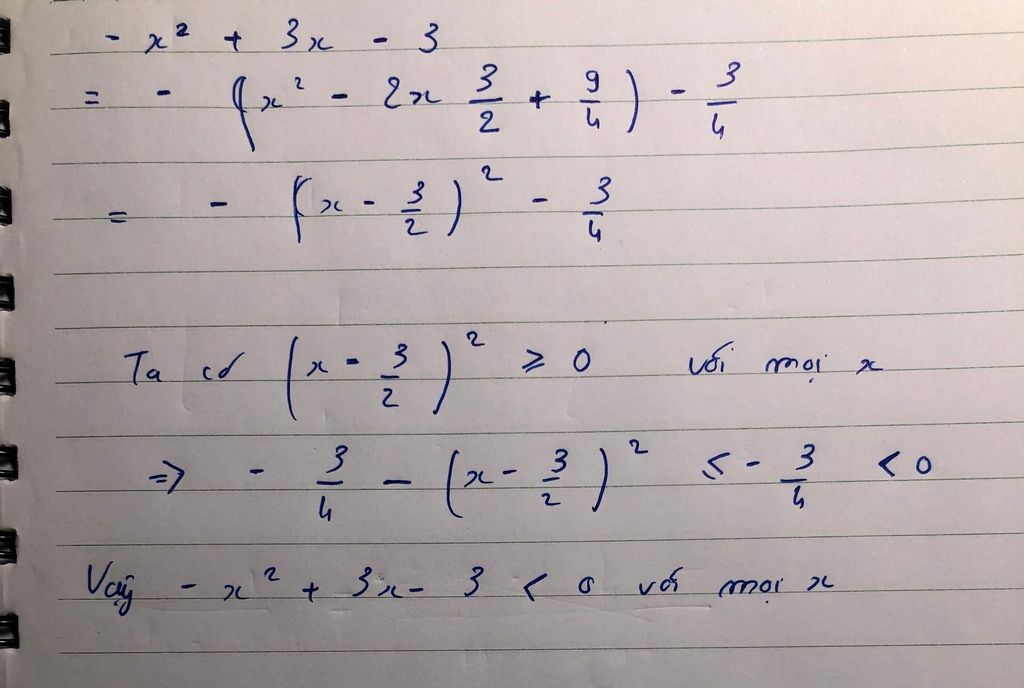 - x² + 3x - 3
= - (x² - 2x 3/2 + 9/4) - 3/4
= - (x - 3/2)² - 3/4
Ta có (x - 3/2)² ⩾ 0 với mọi x
=> - 3/4 - (x - 3/2)² ≤ - 3/4 < 0
Vậy - x² + 3x - 3 < 0 với mọi x